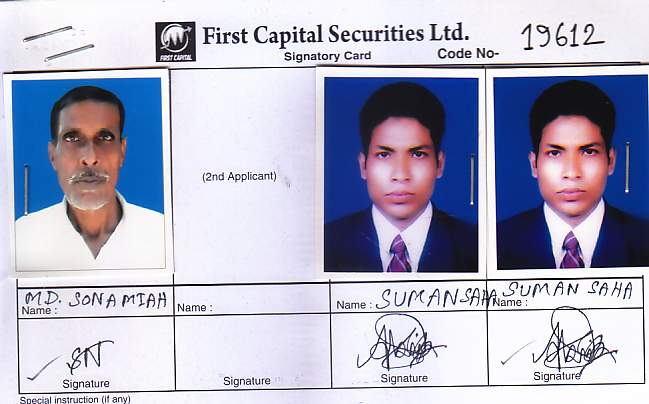 First Capital Securities Ltd.
FIRST CAPITAL
Signatory Card
Code No- 19612
(2nd Applicant)
MD. SONAMIAH
Name :
Name :
Name : SUMAN SAHA
Name: SUMAN SAHA
SN
Signature
Signature
Signature
Signature
Special instruction (if any)